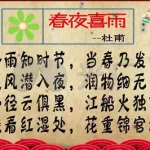 春夜喜雨
--杜甫
雨知时节，当春乃发
风潜入夜，润物细无
径云俱黑，江船火独
看红湿处，花重锦官